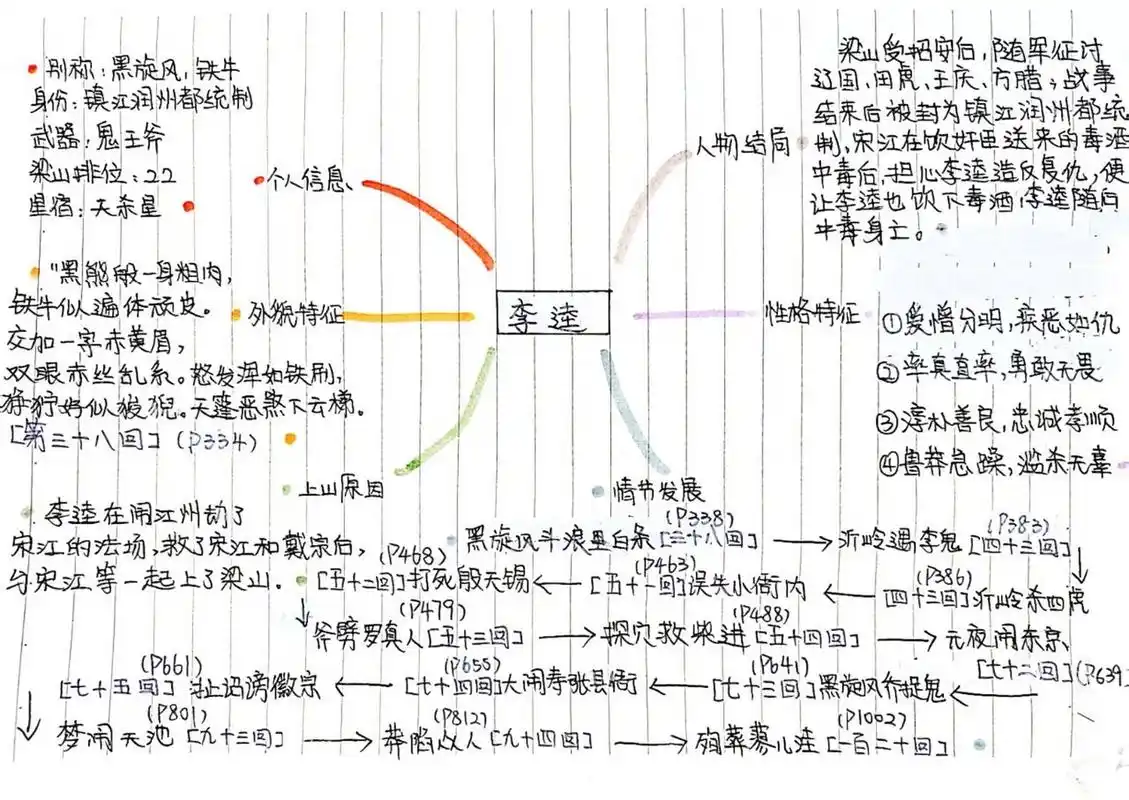 李逵
个人信息、
别称:黑旋风,铁牛
身份:镇江润州都统制
武器:鬼王斧
梁山排位:22
星宿:天杀星
外貌特征
"黑熊般一身粗肉,
铁牛似遍体顽皮。
交加一字赤黄眉,
双眼赤丝乱系。怒发浑如铁刷,
狰狞好似狻猊。天蓬恶煞下云梯。
[第三十八回](P334)
上山原因
李逵在闹江州劫了
宋江的法场,救了宋江和戴宗后,
与宋江等一起上了梁山。
人物结局
梁山受招安后,随军征讨
辽国、田虎、王庆、方腊,战事
结束后被封为镇江润州都统
制,宋江在饮奸臣送来的毒酒
中毒后,担心李逵造反复仇,便
让李逵也饮下毒酒,李逵随后
中毒身亡。
性格特征
①爱憎分明,疾恶如仇
②率真直率,勇敢无畏
③淳朴善良,忠诚孝顺
④鲁莽急躁,滥杀无辜
情节发展
(P338) (P383)
黑旋风斗浪里白条[三十八回]→沂岭遇李鬼[四十三回]
(P468) (P463) (P386)
[五十二回]打死殷天锡←[五十一回]误失小衙内←[四十三回]沂岭杀四虎
(P479) (P488)
斧劈罗真人[五十三回]→探穴救柴进[五十四回]→元夜闹东京、
[七十二回](P639)
(P661) (P655) (P641)
[七十五回]扯诏谤徽宗←[七十四回]大闹寿张县衙←[七十三回]黑旋风乔捉鬼←
(P801) (P812) (P1002)
梦闹天池[九十三回]→莽陷众人[九十四回]→殉葬蓼儿洼[一百二十回]